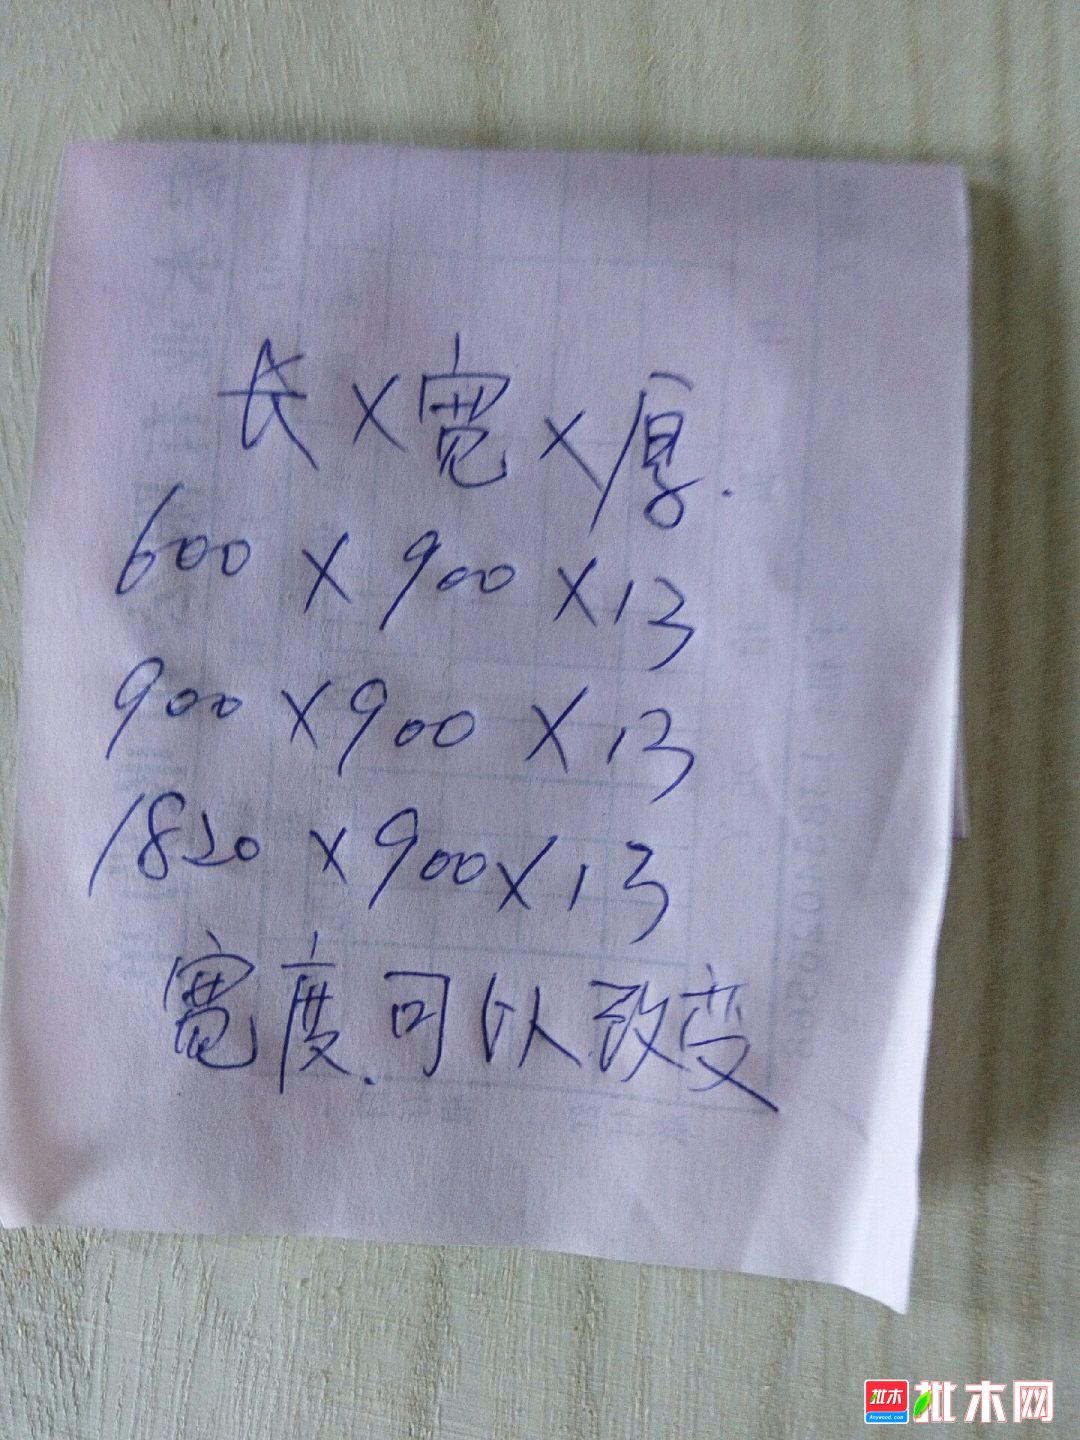 长×宽×厚.
600×900×13
900×900×13
1820×900×13
宽度.可以改变
批木 批木网
Anywood.com